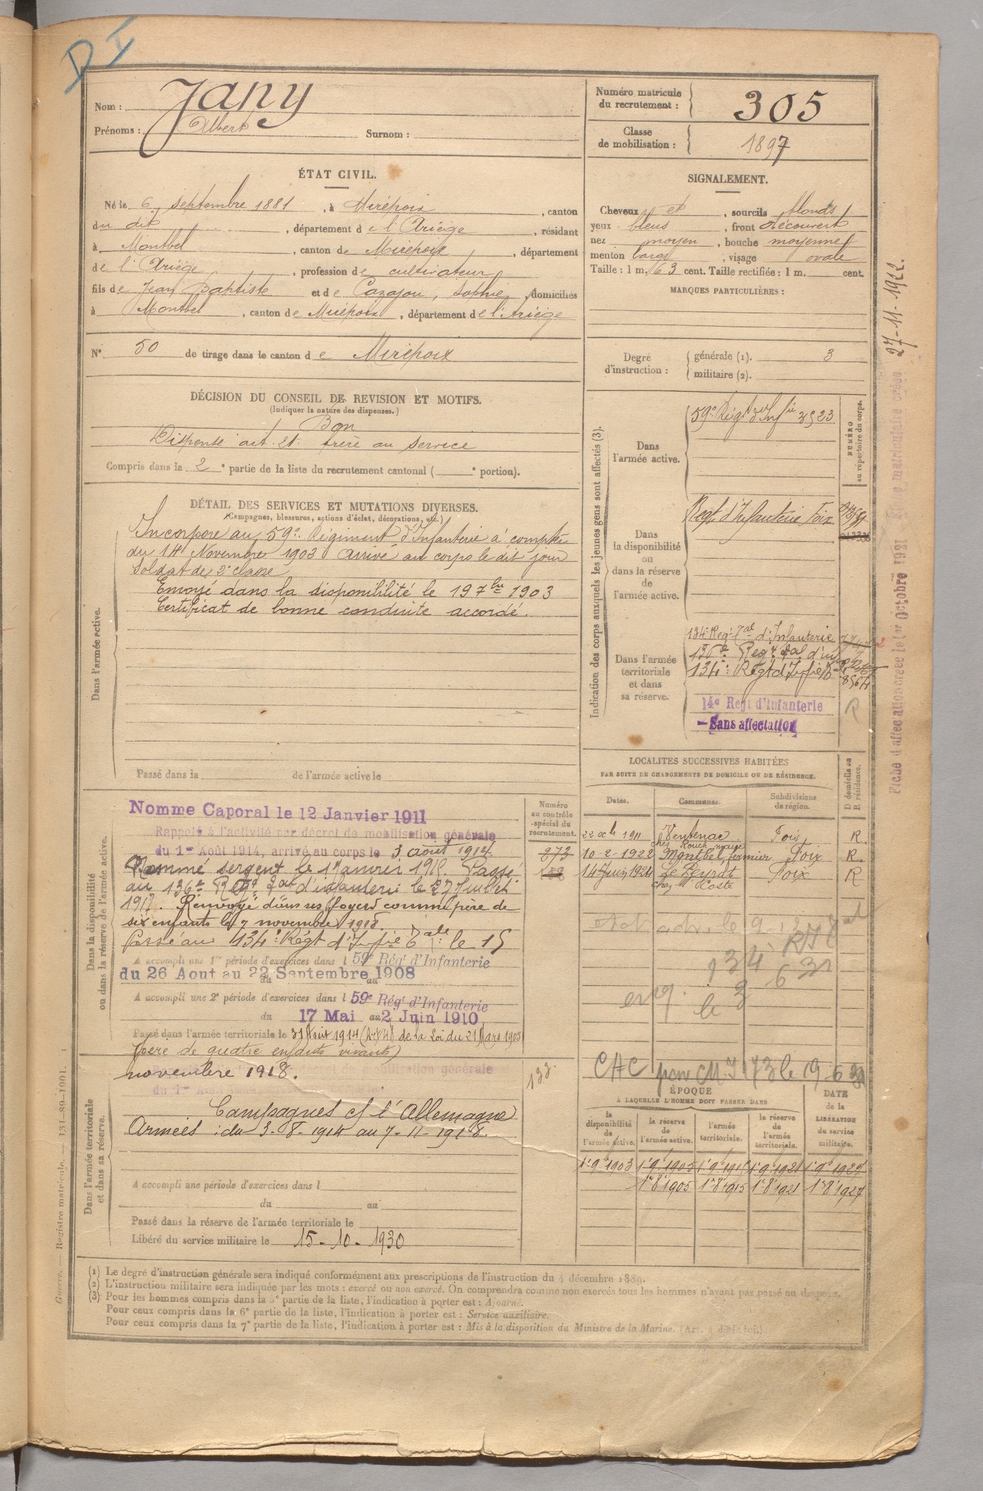 D I
Nom : Jany
Prénoms : Albert Surnom :
Numéro matricule du recrutement : 305
Classe de mobilisation : 1897
ÉTAT CIVIL.
Né le 6 septembre 1881, à Mirepoix, canton
du dit, département de l'Ariège, résidant
à Montbel, canton de Mirepoix, département
de l'Ariège, profession de cultivateur
fils de Jean Baptiste et de Cazajou, Sophie, domiciliés
à Montbel, canton de Mirepoix, département de l'Ariège
N° 50 de tirage dans le canton de Mirepoix
SIGNALEMENT.
Cheveux et, sourcils blonds
yeux bleus, front découvert
nez moyen, bouche moyenne
menton large, visage ovale
Taille : 1 m. 63 cent. Taille rectifiée : 1 m. cent.
MARQUES PARTICULIÈRES :
Degré d'instruction : générale (1). 3
militaire (2).
DÉCISION DU CONSEIL DE REVISION ET MOTIFS.
(Indiquer la nature des dispenses.)
Bon
Dispensé art. 21 frère au service
Compris dans la 2e partie de la liste du recrutement cantonal ( e portion).
DÉTAIL DES SERVICES ET MUTATIONS DIVERSES.
(Campagnes, blessures, actions d'éclat, décorations, etc.)
Dans l'armée active.
Incorporé au 59e Régiment d'Infanterie à compter
du 14 Novembre 1902 Arrivé au corps le dit jour
Soldat de 2e classe
Envoyé dans la disponibilité le 19 7bre 1903
Certificat de bonne conduite accordé.
Passé dans la de l'armée active le
Indication des corps auxquels les jeunes gens sont affectés (3).
NUMÉRO au répertoire du corps.
Dans l'armée active. 59e Régt d'Infie 3523
Dans la disponibilité ou dans la réserve de l'armée active.
Regt d'Infanterie Foix
Dans l'armée territoriale et dans sa réserve.
134e Régt Tal d'Infanterie
136e Regt Tal d'inf
134e Régt d'Infie
14e Régt d'Infanterie
Sans affectation
R
Fiche d'affectation créée le 1er Octobre 1921
27-11-1922.
Dans la disponibilité ou dans la réserve de l'armée active.
Numéro au contrôle spécial du recrutement.
Nommé Caporal le 12 Janvier 1911
Rappelé à l'activité par décret de mobilisation générale
du 1er Août 1914, arrivé au corps le 3 août 1914
Nommé sergent le 1er janvier 1915. Passé
au 136e Régt Tal d'infanterie le 27 juillet
1917. Renvoyé dans ses foyers comme père de
six enfants le 7 novembre 1918
passé au 134e Régt d'Infie Tale le 15
A accompli une 1re période d'exercices dans l 59e Rég't d'Infanterie
du 26 Aout au 22 Septembre 1908
A accompli une 2e période d'exercices dans l 59e Rég't d'Infanterie
du 17 Mai au 2 Juin 1910
Passé dans l'armée territoriale le 31 Août 1914 de la Loi du 21 Mars 1905
(père de quatre enfants vivants)
novembre 1918.
Dans l'armée territoriale et dans sa réserve.
Campagnes ct l'Allemagne
Armées : du 3-8-1914 au 7-11-1918.
A accompli une période d'exercices dans l
du au
Passé dans la réserve de l'armée territoriale le
Libéré du service militaire le 15-10-1930
LOCALITÉS SUCCESSIVES HABITÉES
PAR SUITE DE CHANGEMENTS DE DOMICILE OU DE RÉSIDENCE.
Dates. Communes. Subdivisions de région. D domicile ou R résidence.
1911 Ventenac Foix R.
10-2-1922 Montbel, fermier Foix R.
14 juin 1924 Le Peyrat Foix R
chez Coste
CHC
ÉPOQUE
À LAQUELLE L'HOMME DOIT PASSER DANS
la disponibilité de l'armée active. la réserve de l'armée active. l'armée territoriale. la réserve de l'armée territoriale.
DATE de la LIBÉRATION du service militaire.
1er 9 1903
Guerre. — Registre matricule. — 131-89-1901.
(1) Le degré d'instruction générale sera indiqué conformément aux prescriptions de l'instruction du 4 décembre 1889.
(2) L'instruction militaire sera indiquée par les mots : exercé ou non exercé. On comprendra comme non exercés tous les hommes n'ayant pas passé au drapeau.
(3) Pour les hommes compris dans la 5e partie de la liste, l'indication à porter est : Ajourné.
Pour ceux compris dans la 6e partie de la liste, l'indication à porter est : Service auxiliaire.
Pour ceux compris dans la 7e partie de la liste, l'indication à porter est : Mis à la disposition du Ministre de la Marine.